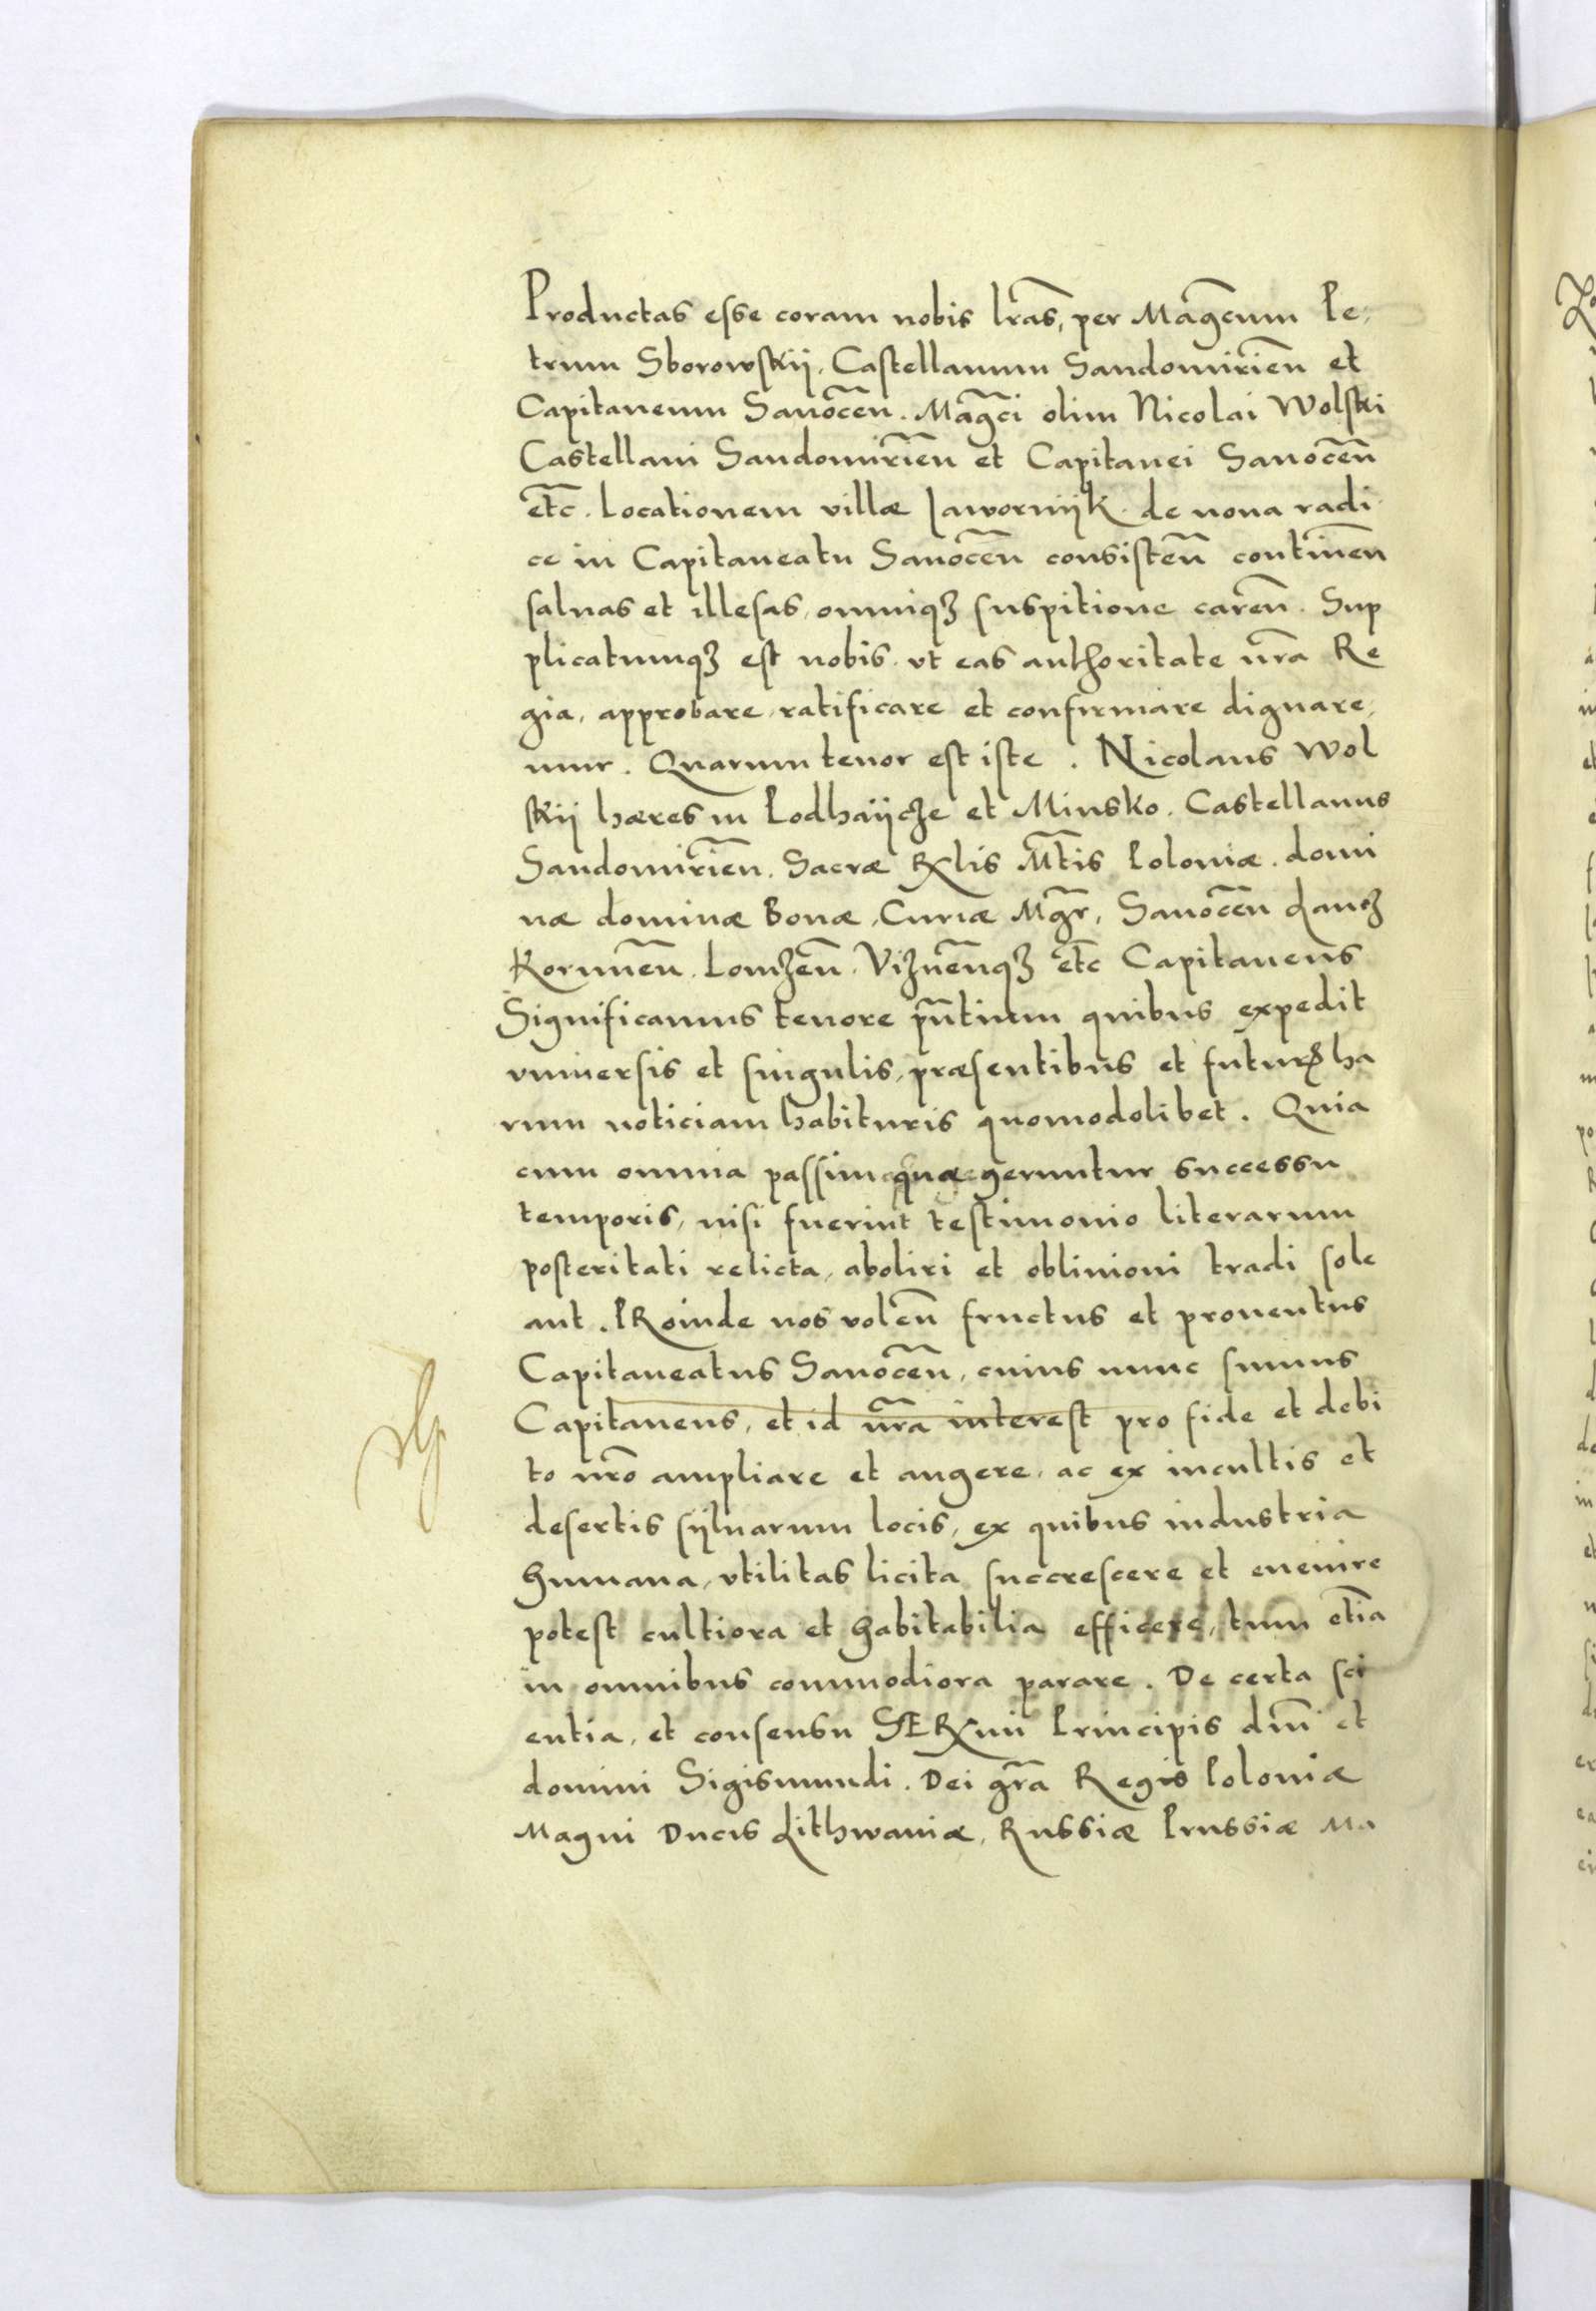 Productas esse coram nobis lr̃as, per Mag̃cum Pe,
trum Sborowskij, Castellanum Sandomirien̄ et
Capitaneum Sanocen̄. Mag̃ci olim Nicolai Wolski
Castellani Sandomirien̄ et Capitanei Sanocen̄
et̄c. Locationem villæ Jawornijk de noua radi
ce in Capitaneatu Sanocen̄ consisten̄ continen̄
saluas et illesas, omniqȝ suspitione caren̄. Sup
plicatumqȝ est nobis vt eas authoritate nr̃a Re
gia, approbare, ratificare et confirmare dignare,
mur. Quarum tenor est iste. Nicolaus Wol
skij hæres in Podhaijcze et Minsko. Castellanus
Sandomirien̄. Sacræ Rx̃lis Mt̃is Poloniæ. domi
næ dominæ Bonæ, Curiæ Mgr̃, Sanocen̄ Lancz
Korunen̄. Lomzen̄. Viznen̄qȝ et̄c Capitaneus
Significamus tenore pn̄tium quibus expedit
vniuersis et singulis, præsentibus et futurꝭ ha
rum noticiam habituris quomodolibet. Quia
cum omnia passim quæ geruntur successu
temporis, nisi fuerint testimonio literarum
posteritati relicta, aboliri et obliuioni tradi sole
ant. PRoinde nos volen̄ fructus et prouentus
Capitaneatus Sanocen̄, cuius nunc sumus
Capitaneus, et id nr̃a interest pro fide et debi
to nr̃o ampliare et augere, ac ex incultis et
desertis sijluarum locis, ex quibus industria
humana, vtilitas licita succrescere et euenire
potest cultiora et habitabilia efficere, tum etīa
in omnibus commodiora parare. De certa sci
entia, et consensu SERx̃mi Principis dn̄i et
domini Sigismundi. Dei gr̃a Regis Poloniæ
Magni Ducis Lithwaniæ, Russiæ Prussiæ Ma